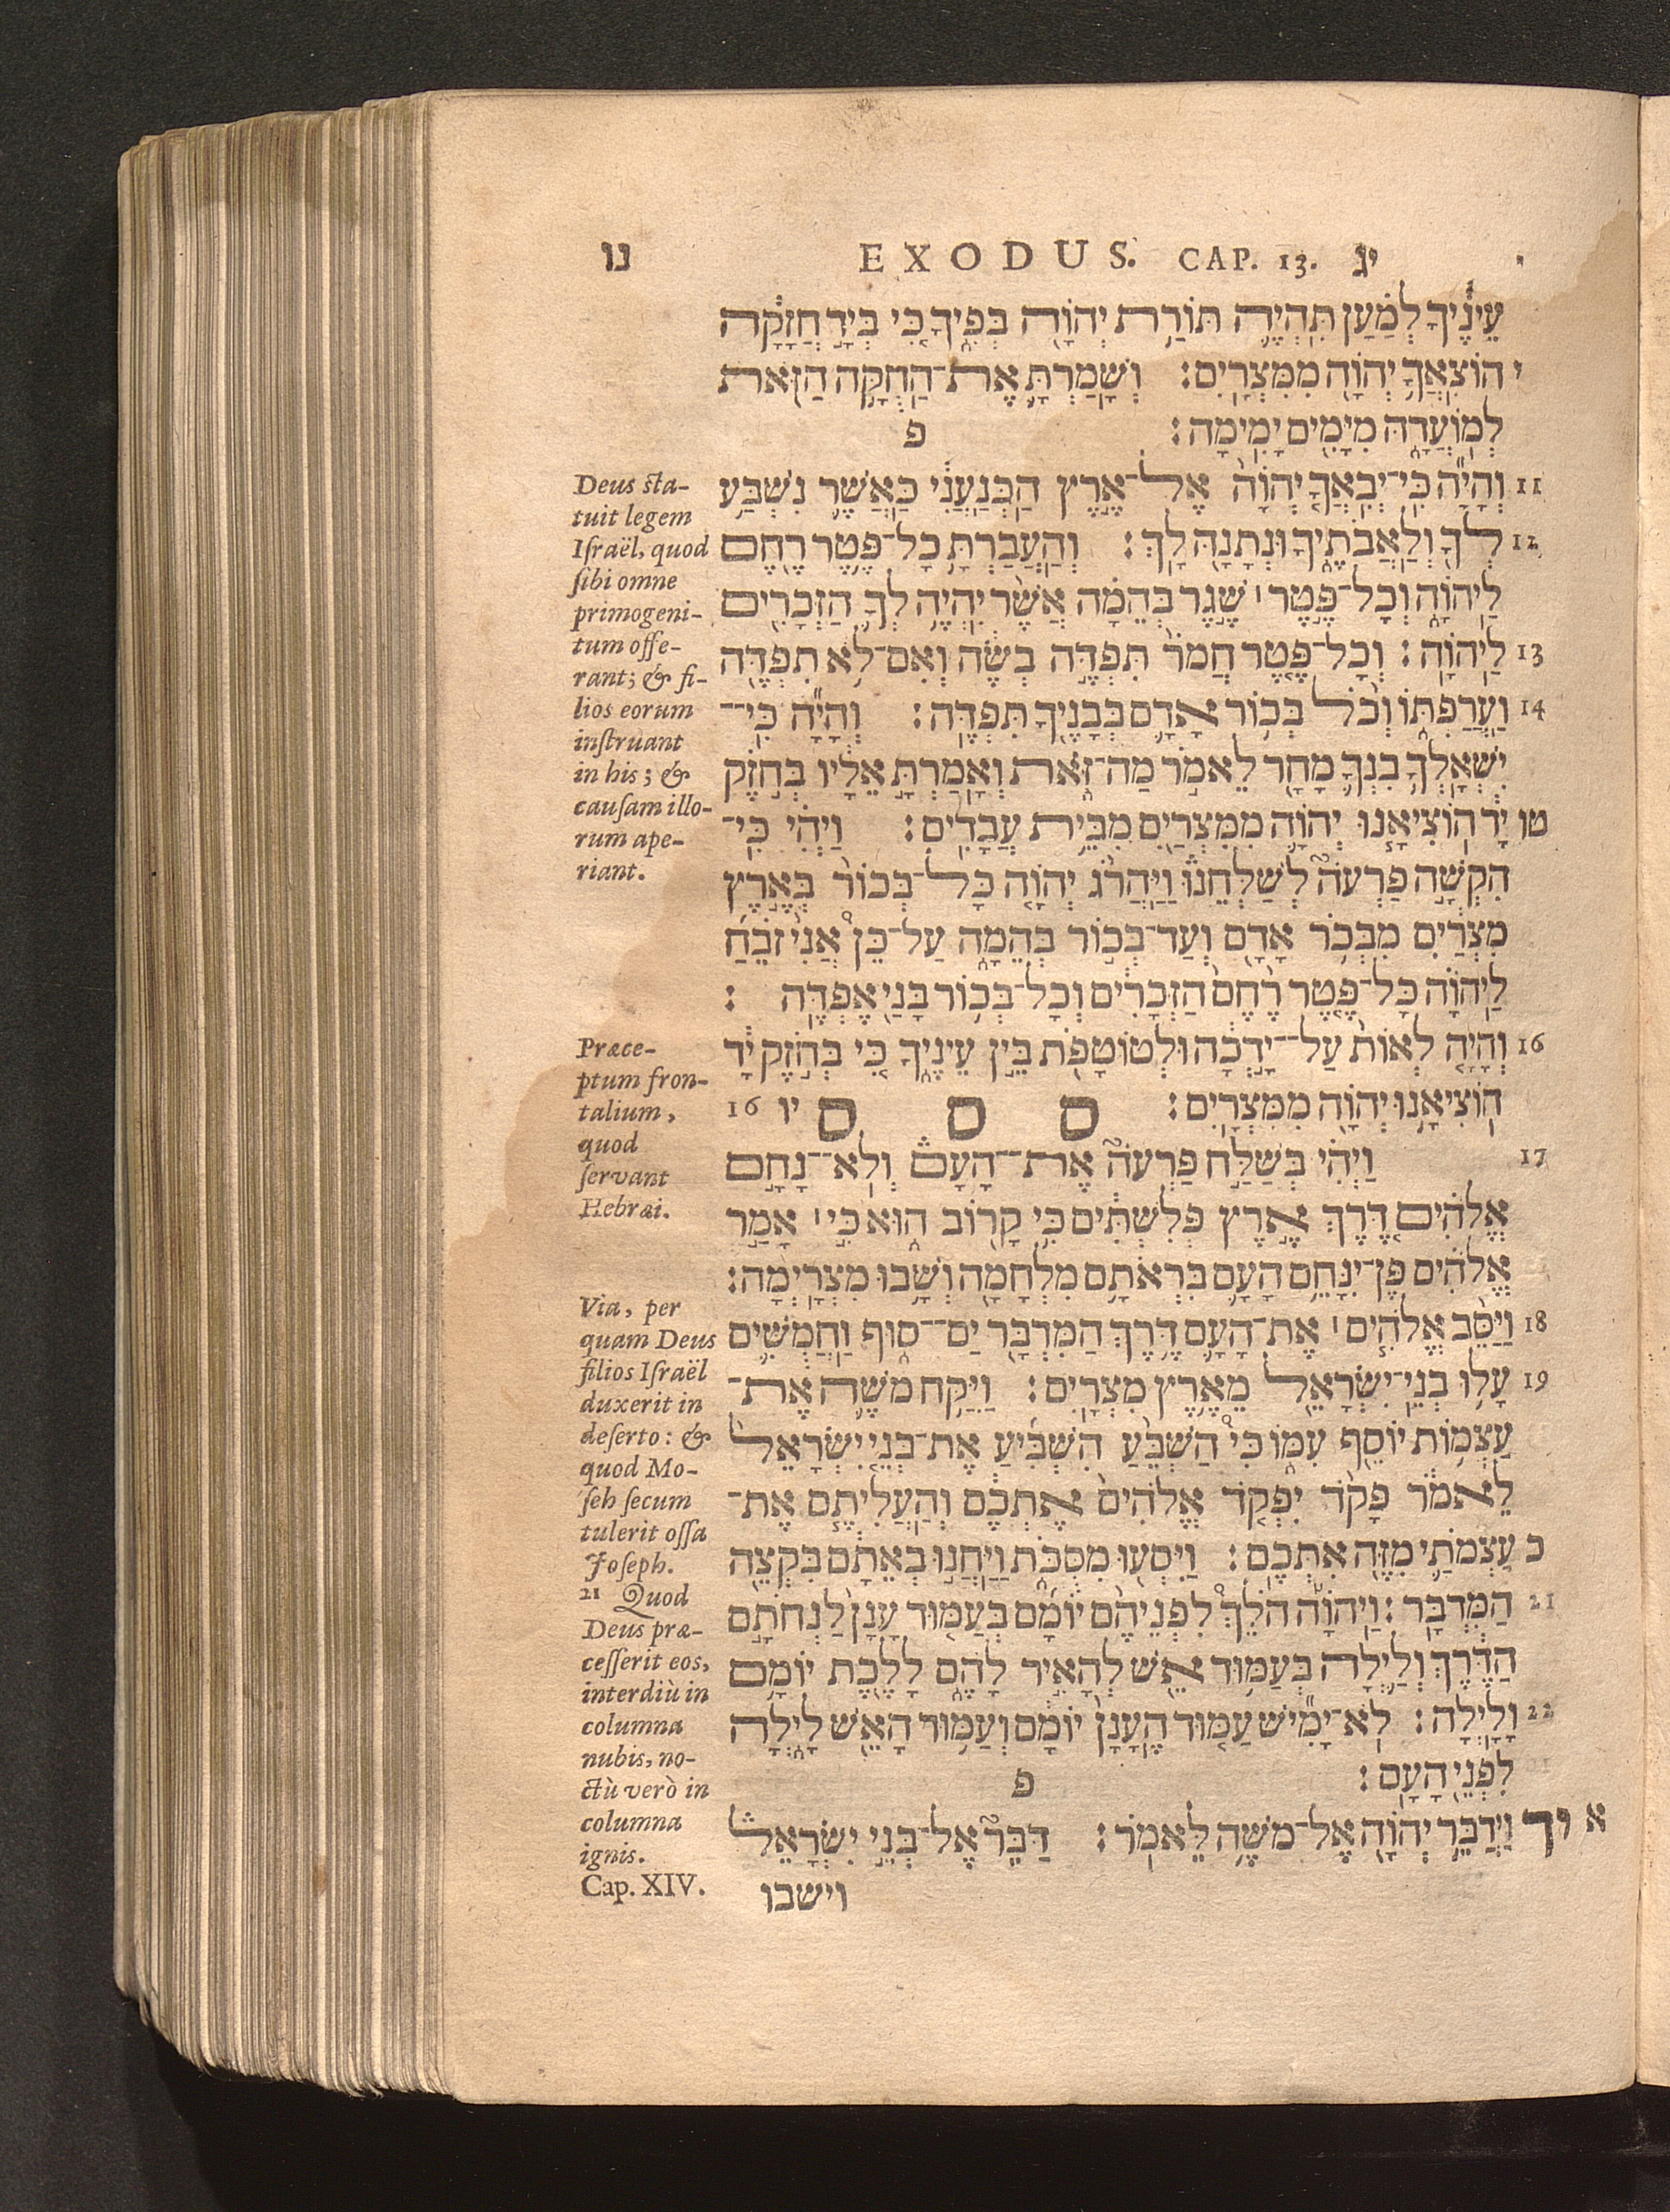 נו EXODUS. CAP. 13. יג
עֵינֶ֔יךָ לְמַ֗עַן תִּהְיֶ֛ה תּוֹרַ֥ת יְהוָ֖ה בְּפִ֑יךָ כִּ֚י בְּיָ֣ד חֲזָקָ֔ה
י הוֹצִֽאֲךָ֥ יְהוָֹ֖ה מִמִּצְרָֽיִם׃ וְשָׁמַרְתָּ֛ אֶת־הַחֻקָּ֥ה הַזֹּ֖את
לְמֽוֹעֲדָ֑הּ מִיָּמִ֖ים יָמִֽימָה׃ פ
11 וְהָיָ֞ה כִּֽי־יְבִֽאֲךָ֤ יְהוָֹה֙ אֶל־אֶ֣רֶץ הַֽכְּנַעֲנִ֔י כַּאֲשֶׁ֛ר נִשְׁבַּ֥ע
12 לְךָ֖ וְלַֽאֲבֹתֶ֑יךָ וּנְתָנָ֖הּ לָֽךְ׃ וְהַֽעֲבַרְתָּ֥ כָל־פֶּֽטֶר־רֶ֖חֶם
לַֽיהוָֹ֑ה וְכָל־פֶּ֣טֶר ׀ שֶׁ֣גֶר בְּהֵמָ֗ה אֲשֶׁ֨ר יִֽהְיֶ֥ה לְךָ֛ הַזְּכָרִ֖ים
13 לַֽיהוָֹֽה׃ וְכָל־פֶּ֤טֶר חֲמֹר֙ תִּפְדֶּ֣ה בְשֶׂ֔ה וְאִם־לֹ֥א תִפְדֶּ֖ה
14 וַֽעֲרַפְתּ֑וֹ וְכֹ֨ל בְּכ֥וֹר אָדָ֛ם בְּבָנֶ֖יךָ תִּפְדֶּֽה׃ וְהָיָ֞ה כִּֽי־
יִשְׁאָֽלְךָ֥ בִנְךָ֛ מָחָ֖ר לֵאמֹ֣ר מַה־זֹּ֑את וְאָֽמַרְתָּ֣ אֵלָ֔יו בְּחֹ֣זֶק
טו יָ֗ד הוֹצִיאָ֧נוּ יְהוָֹ֛ה מִמִּצְרַ֖יִם מִבֵּ֥ית עֲבָדִֽים׃ וַיְהִ֗י כִּֽי־
הִקְשָׁ֣ה פַרְעֹה֮ לְשַׁלְּחֵנוּ֒ וַיַּֽהֲרֹ֨ג יְהוָֹ֤ה כָּל־בְּכוֹר֙ בְּאֶ֣רֶץ
מִצְרַ֔יִם מִבְּכֹ֥ר אָדָ֖ם וְעַד־בְּכ֣וֹר בְּהֵמָ֑ה עַל־כֵּן֩ אֲנִ֨י זֹבֵ֜חַ
לַֽיהוָֹ֗ה כָּל־פֶּ֤טֶר רֶ֨חֶם֙ הַזְּכָרִ֔ים וְכָל־בְּכ֥וֹר בָּנַ֖י אֶפְדֶּֽה׃
16 וְהָיָ֤ה לְאוֹת֙ עַל־יָ֣דְכָ֔ה וּלְטוֹטָפֹ֖ת בֵּ֣ין עֵינֶ֑יךָ כִּ֚י בְּחֹ֣זֶק יָ֔ד
הֽוֹצִיאָ֥נוּ יְהוָֹ֖ה מִמִּצְרָֽיִם׃ ס ס ס יו 16
17 וַיְהִ֗י בְּשַׁלַּ֣ח פַּרְעֹה֮ אֶת־הָעָם֒ וְלֹא־נָחָ֣ם
אֱלֹהִ֗ים דֶּ֚רֶךְ אֶ֣רֶץ פְּלִשְׁתִּ֔ים כִּ֥י קָר֖וֹב ה֑וּא כִּ֣י ׀ אָמַ֣ר
אֱלֹהִ֗ים פֶּן־יִנָּחֵ֥ם הָעָ֛ם בִּרְאֹתָ֥ם מִלְחָמָ֖ה וְשָׁ֥בוּ מִצְרָֽיְמָה׃
18 וַיַּסֵּ֨ב אֱלֹהִ֧ים ׀ אֶת־הָעָ֛ם דֶּ֥רֶךְ הַמִּדְבָּ֖ר יַם־ס֑וּף וַחֲמֻשִׁ֛ים
19 עָל֥וּ בְנֵֽי־יִשְׂרָאֵ֖ל מֵאֶ֥רֶץ מִצְרָֽיִם׃ וַיִּקַּ֥ח מֹשֶׁ֛ה אֶת־
עַצְמ֥וֹת יוֹסֵ֖ף עִמּ֑וֹ כִּי֩ הַשְׁבֵּ֨עַ הִשְׁבִּ֜יעַ אֶת־בְּנֵ֤י יִשְׂרָאֵל֙
לֵאמֹ֔ר פָּקֹ֨ד יִפְקֹ֤ד אֱלֹהִים֙ אֶתְכֶ֔ם וְהַֽעֲלִיתֶ֧ם אֶת־
כ עַצְמֹתַ֛י מִזֶּ֖ה אִתְּכֶֽם׃ וַיִּסְע֖וּ מִסֻּכֹּ֑ת וַיַּחֲנ֣וּ בְאֵתָ֔ם בִּקְצֵ֖ה
21 הַמִּדְבָּֽר׃ וַֽיהוָֹ֡ה הֹלֵךְ֩ לִפְנֵיהֶ֨ם יוֹמָ֜ם בְּעַמּ֤וּד עָנָן֙ לַנְחֹתָ֣ם
הַדֶּ֔רֶךְ וְלַ֛יְלָה בְּעַמּ֥וּד אֵ֖שׁ לְהָאִ֣יר לָהֶ֑ם לָלֶ֖כֶת יוֹמָ֥ם
22 וָלָֽיְלָה׃ לֹֽא־יָמִ֞ישׁ עַמּ֤וּד הֶֽעָנָן֙ יוֹמָ֔ם וְעַמּ֥וּד הָאֵ֖שׁ לָ֑יְלָה
לִפְנֵ֖י הָעָֽם׃ פ
א יד וַיְדַבֵּ֥ר יְהוָֹ֖ה אֶל־מֹשֶׁ֥ה לֵּאמֹֽר׃ דַּבֵּר֮ אֶל־בְּנֵ֣י יִשְׂרָאֵל֒
וישבו
Deus sta-
tuit legem
Iſraël, quod
ſibi omne
primogeni-
tum offe-
rant; & fi-
lios eorum
inſtruant
in his; &
cauſam illo-
rum ape-
riant.
Præce-
ptum fron-
talium,
quod
ſervant
Hebræi.
Via, per
quam Deus
filios Iſraël
duxerit in
deſerto: &
quod Mo-
ſeh ſecum
tulerit oſſa
Joſeph.
21 Quod
Deus præ-
ceſſerit eos,
interdiù in
columna
nubis, no-
ctù verò in
columna
ignis.
Cap. XIV.